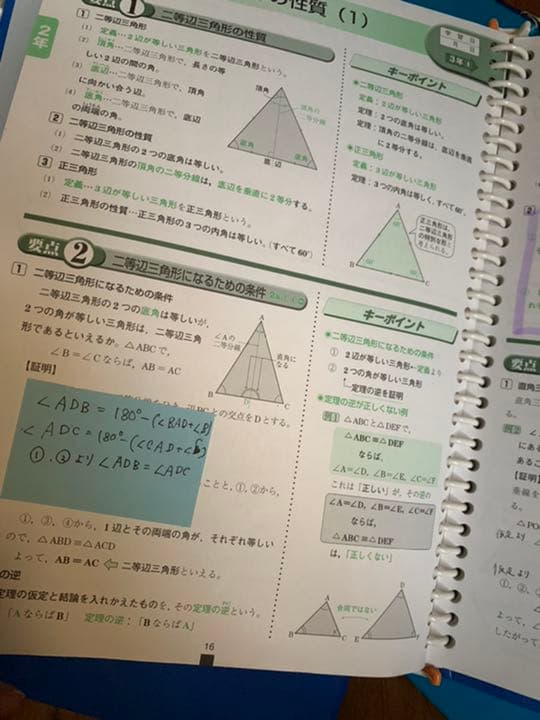 の性質（1）
学習日
月 日
3年
2年
要点 1 二等辺三角形の性質
1 二等辺三角形
(1) 定義…2辺が等しい三角形を二等辺三角形という。
(2) 頂角…二等辺三角形で、長さの等
しい2辺の間の角。
(3) 底辺…二等辺三角形で、頂角
に向かい合う辺。
(4) 底角…二等辺三角形で、底辺
の両端の角。
頂角
頂角の
二等分線
底角
底辺
底角
2 二等辺三角形の性質
(1) 二等辺三角形の2つの底角は等しい。
(2) 二等辺三角形の頂角の二等分線は、底辺を垂直に2等分する。
3 正三角形
(1) 定義…3辺が等しい三角形を正三角形という。
(2) 正三角形の性質…正三角形の3つの内角は等しい。(すべて60°)
キーポイント
二等辺三角形
定義：2辺が等しい三角形
定理：2つの底角は等しい。
定理：頂角の二等分線は、底辺を垂直
に2等分する。
正三角形
定義：3辺が等しい三角形
定理：3つの内角は等しく、すべて60°
A
60°
B
60°
60°
C
正三角形は、
二等辺三角形
の特別な形と
考えられる。
要点 2 二等辺三角形になるための条件
1 二等辺三角形になるための条件
二等辺三角形の2つの底角は等しいが、
2つの角が等しい三角形は、二等辺三角
形であるといえるか。△ABCで、
∠B=∠C ならば、AB=AC
【証明】
∠Aの
二等分線
A
直角に
なる
B
D
C
との交点をDとする。
∠ADB=180°-(∠BAD+∠B)
∠ADC=180°-(∠CAD+∠C)
①,②より ∠ADB=∠ADC
ことと、①、②から、
①、③、④から、1辺とその両端の角が、それぞれ等しい
ので、△ABD≡△ACD
よって、AB=AC ⇦ 二等辺三角形といえる。
の逆
定理の仮定と結論を入れかえたものを、その定理の逆という。
「AならばB」 定理の逆：「BならばA」
キーポイント
二等辺三角形になるための条件
① 2辺が等しい三角形←定義より
② 2つの角が等しい三角形
定理の逆を証明
定理の逆が正しくない例
例1 △ABCと△DEFで、
△ABC≡△DEF
ならば、
∠A=∠D, ∠B=∠E, ∠C=∠F
これは「正しい」が、その逆の
∠A=∠D, ∠B=∠E, ∠C=∠F
ならば、
△ABC≡△DEF
は、「正しくない」
A
B
C
合同ではない
D
E
F
16
2
要点
1 直角三
例2